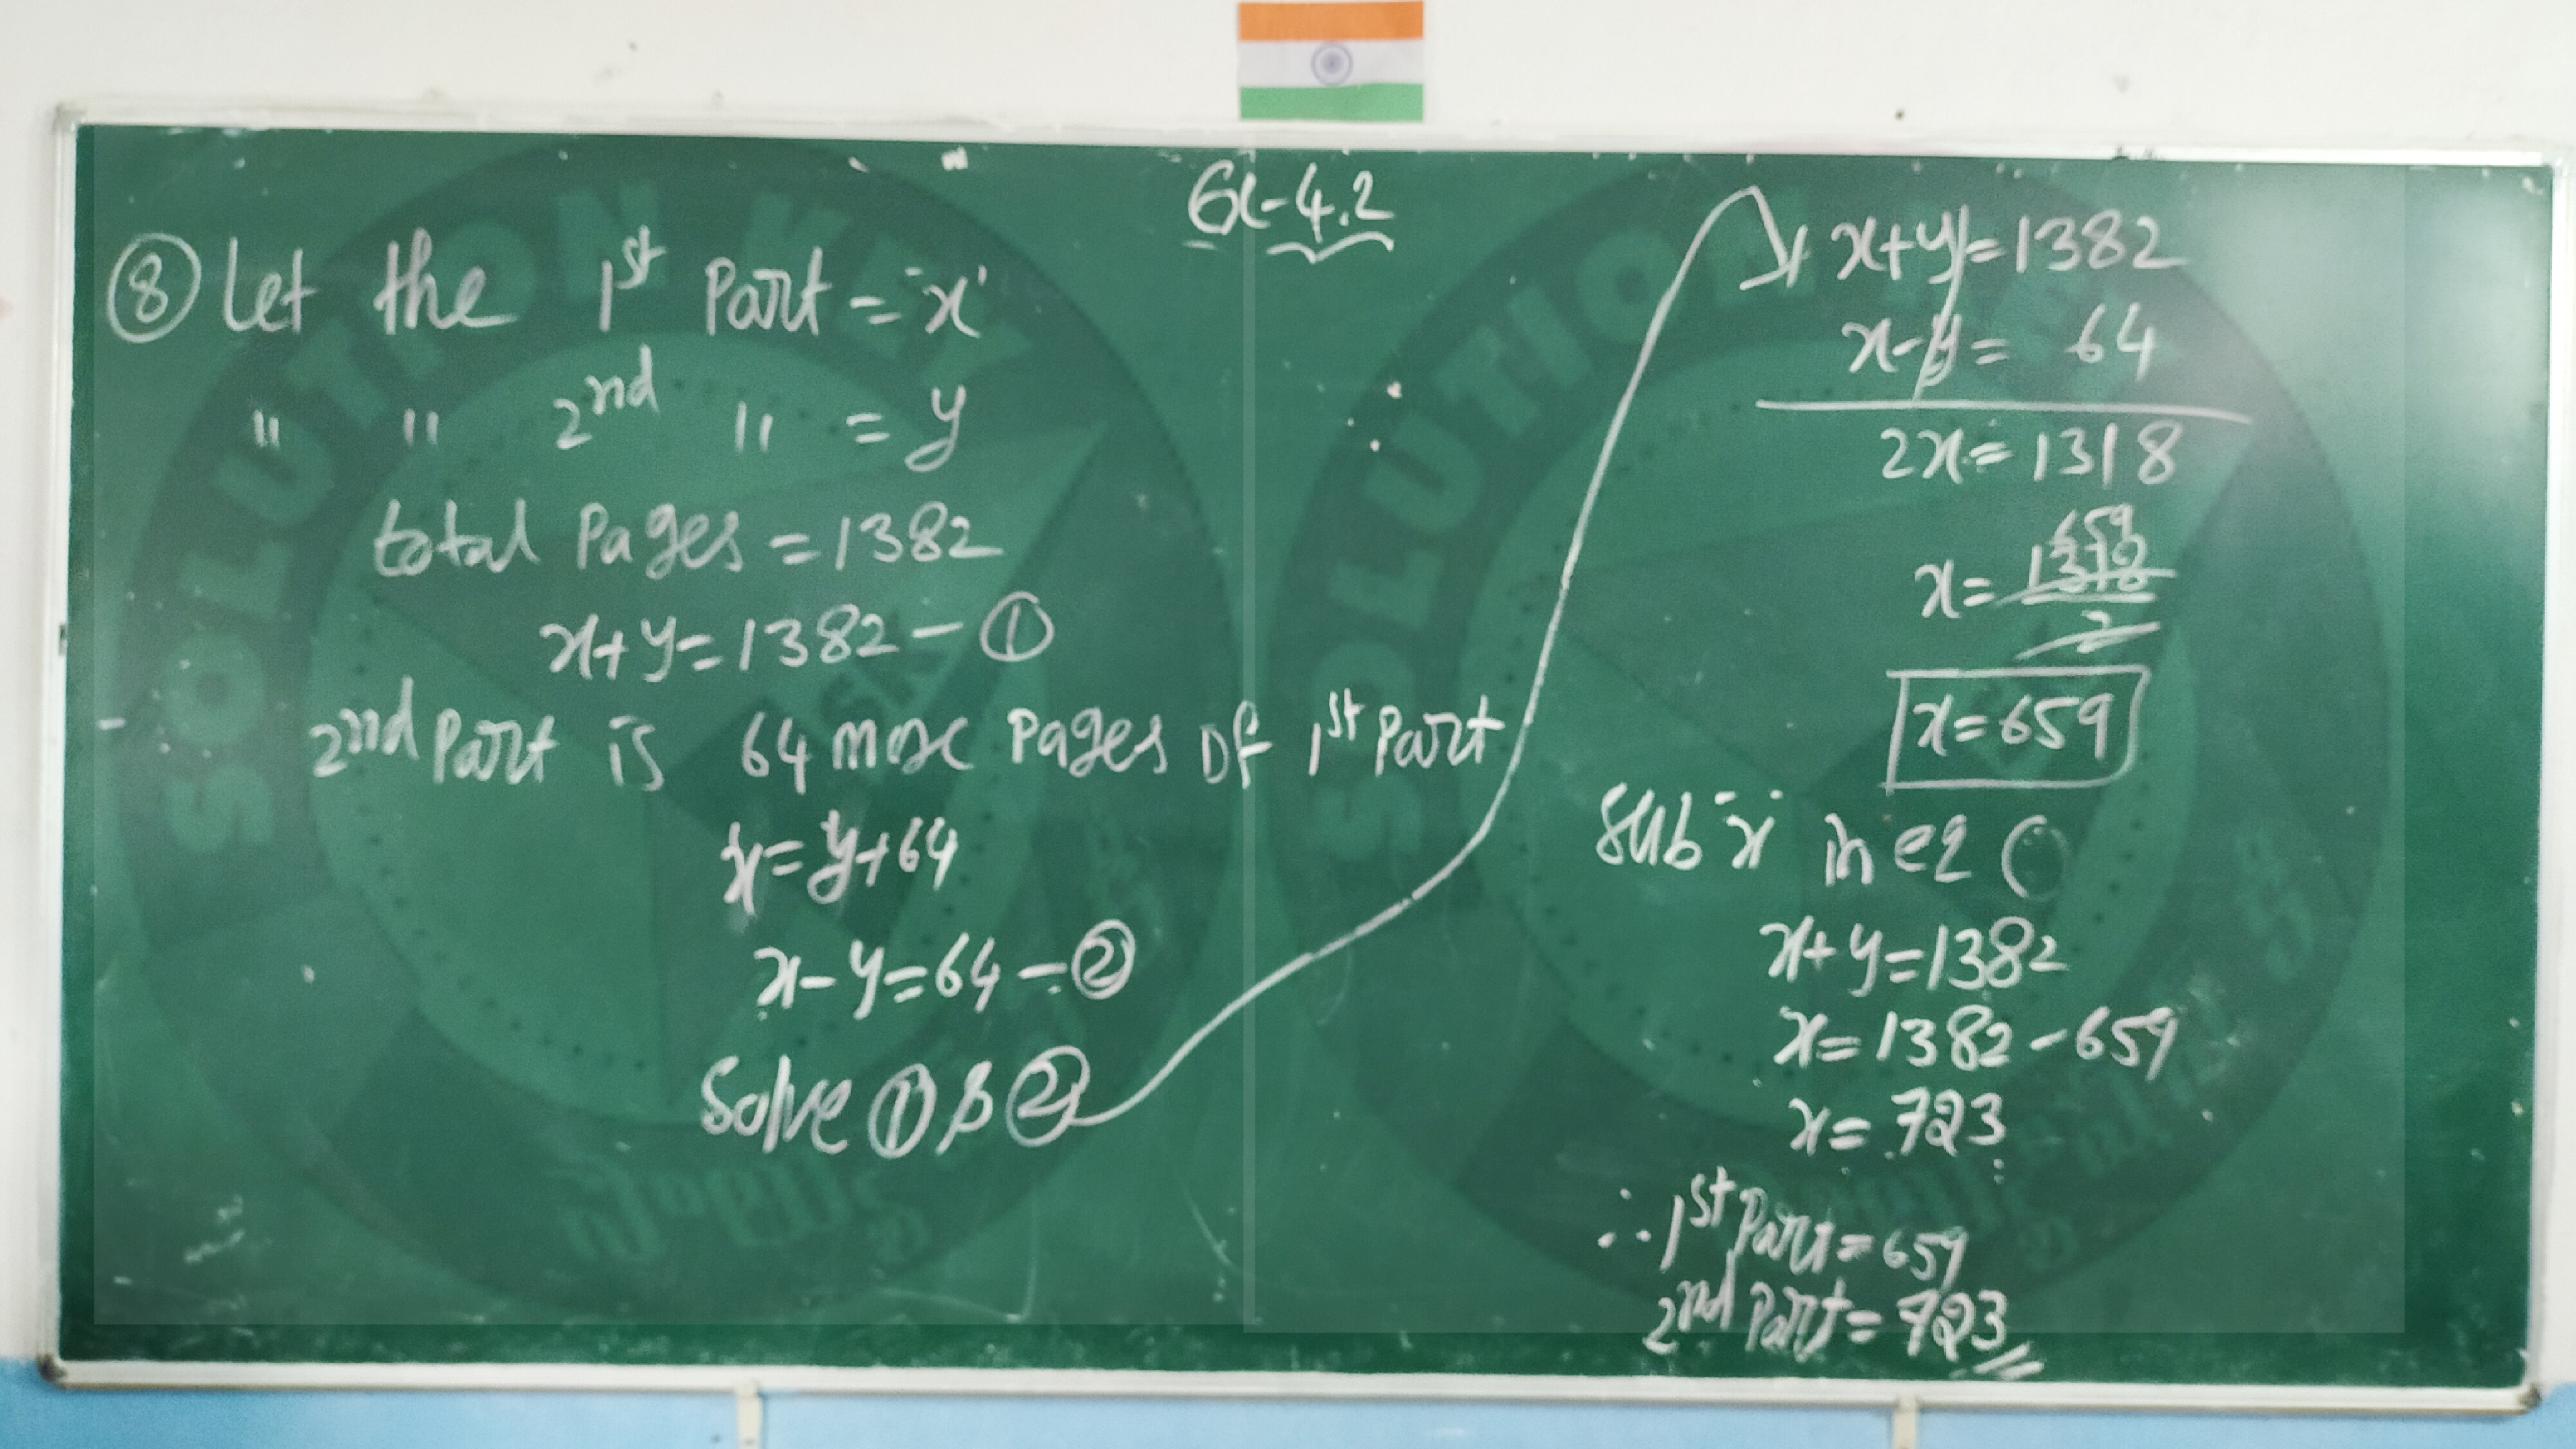 Ex-4.2
⑧ Let the 1st Part = 'x'
" " 2nd " = y
total Pages = 1382
x+y=1382 - ①
2nd Part is 64 more Pages of 1st Part
x=y+64
x-y=64 - ②
Solve ① & ②
x+y=1382
x-y= 64
2x=1318
659
x=1318
2
x=659
Sub 'x' in eq
x+y=1382
x=1382-659
x=723
∴ 1st Part=659
2nd Part=723
SOLUTION KEY
SOLUTION KEY